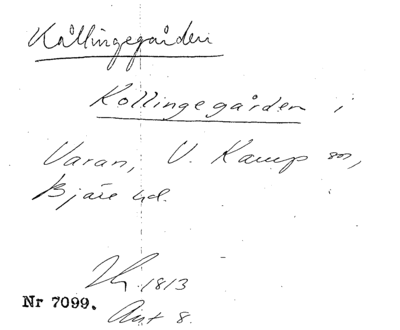 Kållingegården
Kollingegården i
Varan, V. Karup sn,
Bjäre hd.
1813
Nr 7099.
Akt 8.